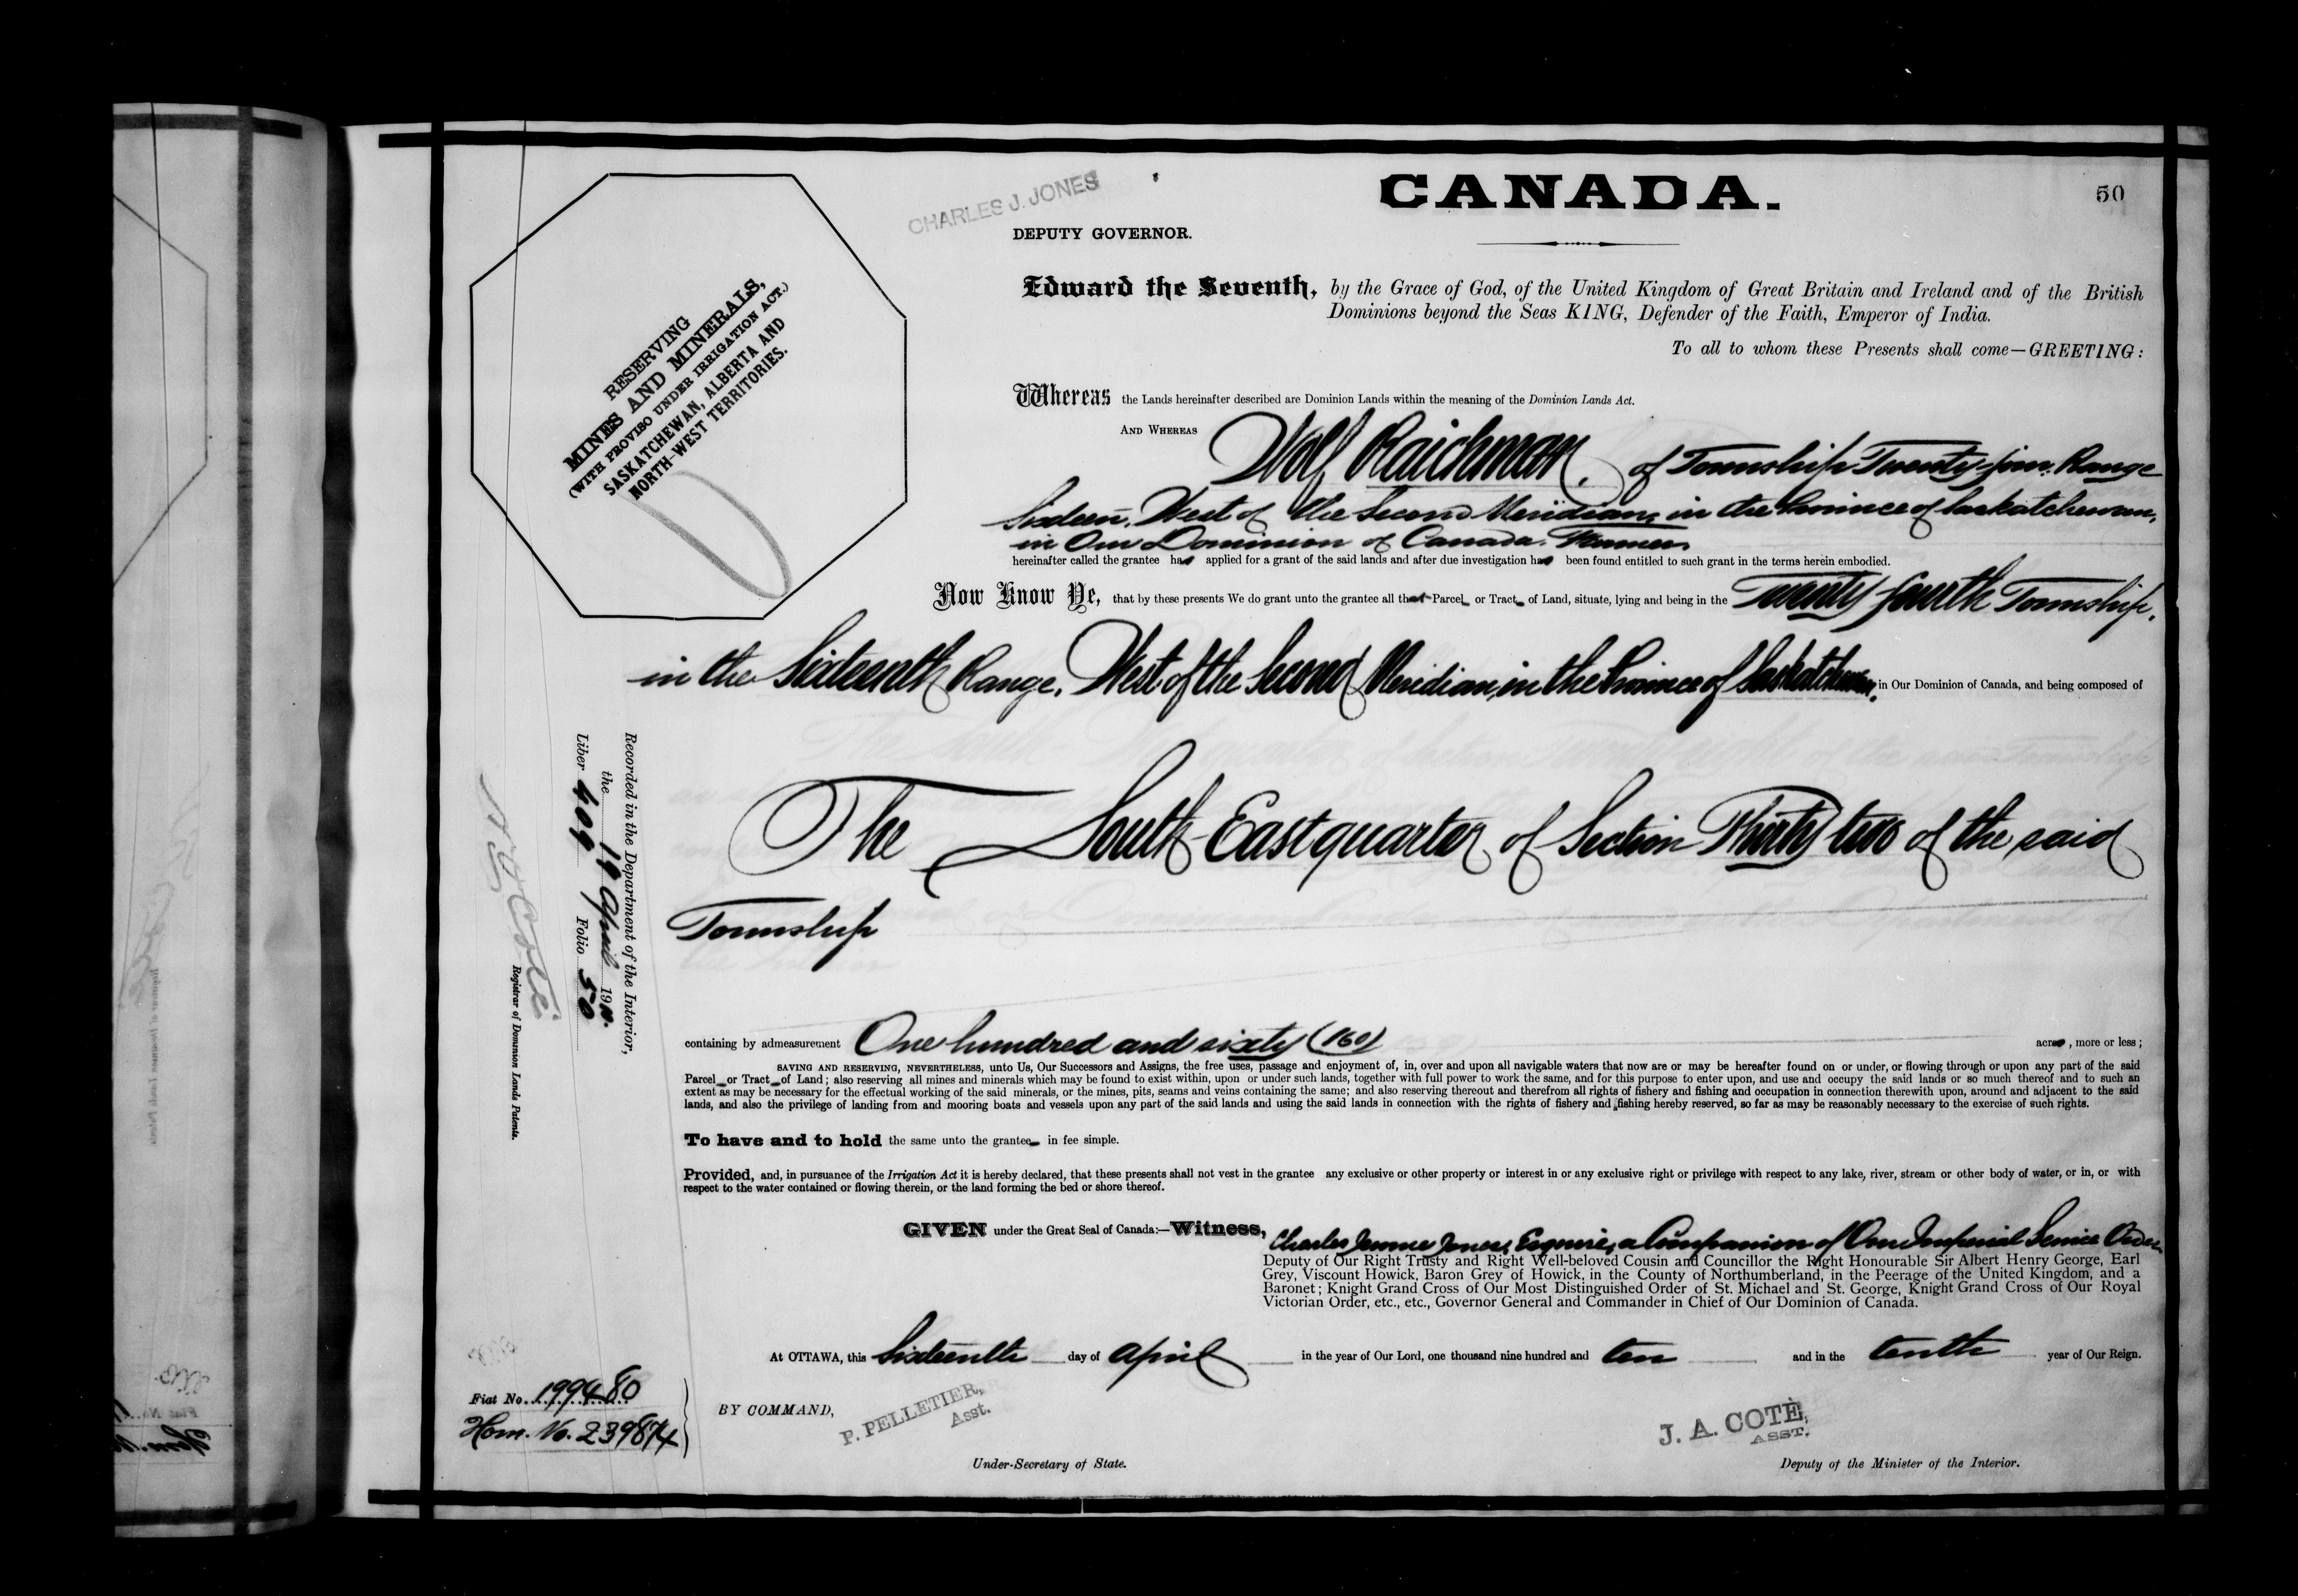 CANADA.
50
CHARLES J. JONES
DEPUTY GOVERNOR.
RESERVING
MINES AND MINERALS,
(WITH PROVISO UNDER IRRIGATION ACT.)
SASKATCHEWAN, ALBERTA AND
NORTH-WEST TERRITORIES.
Edward the Seventh, by the Grace of God, of the United Kingdom of Great Britain and Ireland and of the British
Dominions beyond the Seas KING, Defender of the Faith, Emperor of India.
To all to whom these Presents shall come—GREETING:
Whereas the Lands hereinafter described are Dominion Lands within the meaning of the Dominion Lands Act.
AND WHEREAS Wolf Raichman, of Township Twenty-four, Range
Sixteen, West of the Second Meridian, in the Province of Saskatchewan,
in Our Dominion of Canada, Farmer
hereinafter called the grantee has applied for a grant of the said lands and after due investigation has been found entitled to such grant in the terms herein embodied.
Now Know Ye, that by these presents We do grant unto the grantee all that Parcel or Tract of Land, situate, lying and being in the Twenty fourth Township,
in the Sixteenth Range, West of the Second Meridian, in the Province of Saskatchewan, in Our Dominion of Canada, and being composed of
The South-East quarter of Section Thirty two of the said
Township
containing by admeasurement One hundred and sixty (160) acres, more or less;
SAVING AND RESERVING, NEVERTHELESS, unto Us, Our Successors and Assigns, the free uses, passage and enjoyment of, in, over and upon all navigable waters that now are or may be hereafter found on or under, or flowing through or upon any part of the said
Parcel or Tract of Land; also reserving all mines and minerals which may be found to exist within, upon or under such lands, together with full power to work the same, and for this purpose to enter upon, and use and occupy the said lands or so much thereof and to such an
extent as may be necessary for the effectual working of the said minerals, or the mines, pits, seams and veins containing the same; and also reserving thereout and therefrom all rights of fishery and fishing and occupation in connection therewith upon, around and adjacent to the said
lands, and also the privilege of landing from and mooring boats and vessels upon any part of the said lands and using the said lands in connection with the rights of fishery and fishing hereby reserved, so far as may be reasonably necessary to the exercise of such rights.
To have and to hold the same unto the grantee in fee simple.
Provided, and, in pursuance of the Irrigation Act it is hereby declared, that these presents shall not vest in the grantee any exclusive or other property or interest in or any exclusive right or privilege with respect to any lake, river, stream or other body of water, or in, or with
respect to the water contained or flowing therein, or the land forming the bed or shore thereof.
GIVEN under the Great Seal of Canada:—Witness, Charles Jones, Esquire, a Companion of Our Imperial Service Order,
Deputy of Our Right Trusty and Right Well-beloved Cousin and Councillor the Right Honourable Sir Albert Henry George, Earl
Grey, Viscount Howick, Baron Grey of Howick, in the County of Northumberland, in the Peerage of the United Kingdom, and a
Baronet; Knight Grand Cross of Our Most Distinguished Order of St. Michael and St. George, Knight Grand Cross of Our Royal
Victorian Order, etc., etc., Governor General and Commander in Chief of Our Dominion of Canada.
At OTTAWA, this Sixteenth day of April in the year of Our Lord, one thousand nine hundred and ten and in the tenth year of Our Reign.
BY COMMAND,
P. PELLETIER,
Asst.
Under-Secretary of State.
J. A. COTÉ,
ASST.
Deputy of the Minister of the Interior.
Recorded in the Department of the Interior,
the 18 April 1910.
Liber 409 Folio 50
N. O. Coté
Registrar of Dominion Lands Patents.
Fiat No. 199480
Hom. No. 239874